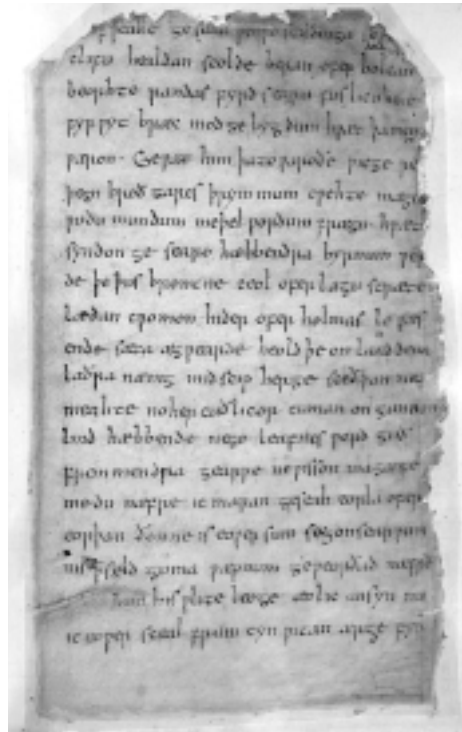 ƿealle geseah ƿeard scildinga
clifu healdan scolde beran ofer bolcan
beorhte randas fyrd searu fuslicu hine
fyrƿyt bræc mod ge hygdum hƿæt þa men
ƿæron. Geƿat him þa to ƿaroðe ƿicge ri
þegn hroð gares þrymmum cƿehte mægen
ƿudu mundum meþel ƿordum frægn. hƿæt
syndon ge searo hæbbendra byrnum ƿere
de þe þus brontne ceol ofer lagu stræte
lædan cƿomon hider ofer holmas le ƿæs
ende sæta ægƿearde heold þe on land dena
laðra nænig mid scip herge sceðþan ne
meahte no her cuðlicor cuman ongunnon
lind hæbbende ne ge leafnes ƿord guð
fremmendra gearƿe ne ƿisson maga ge
medu næfre ic maran geseah eorla ofer
eorþan ðonne is eoƿer sum secg on searƿum
nis ꝥ seld guma ƿæpnum geƿeorðad næfne
him his ƿlite leoge ænlic ansyn nu
ic eoƿer sceal frum cyn ƿitan ær ge fyr